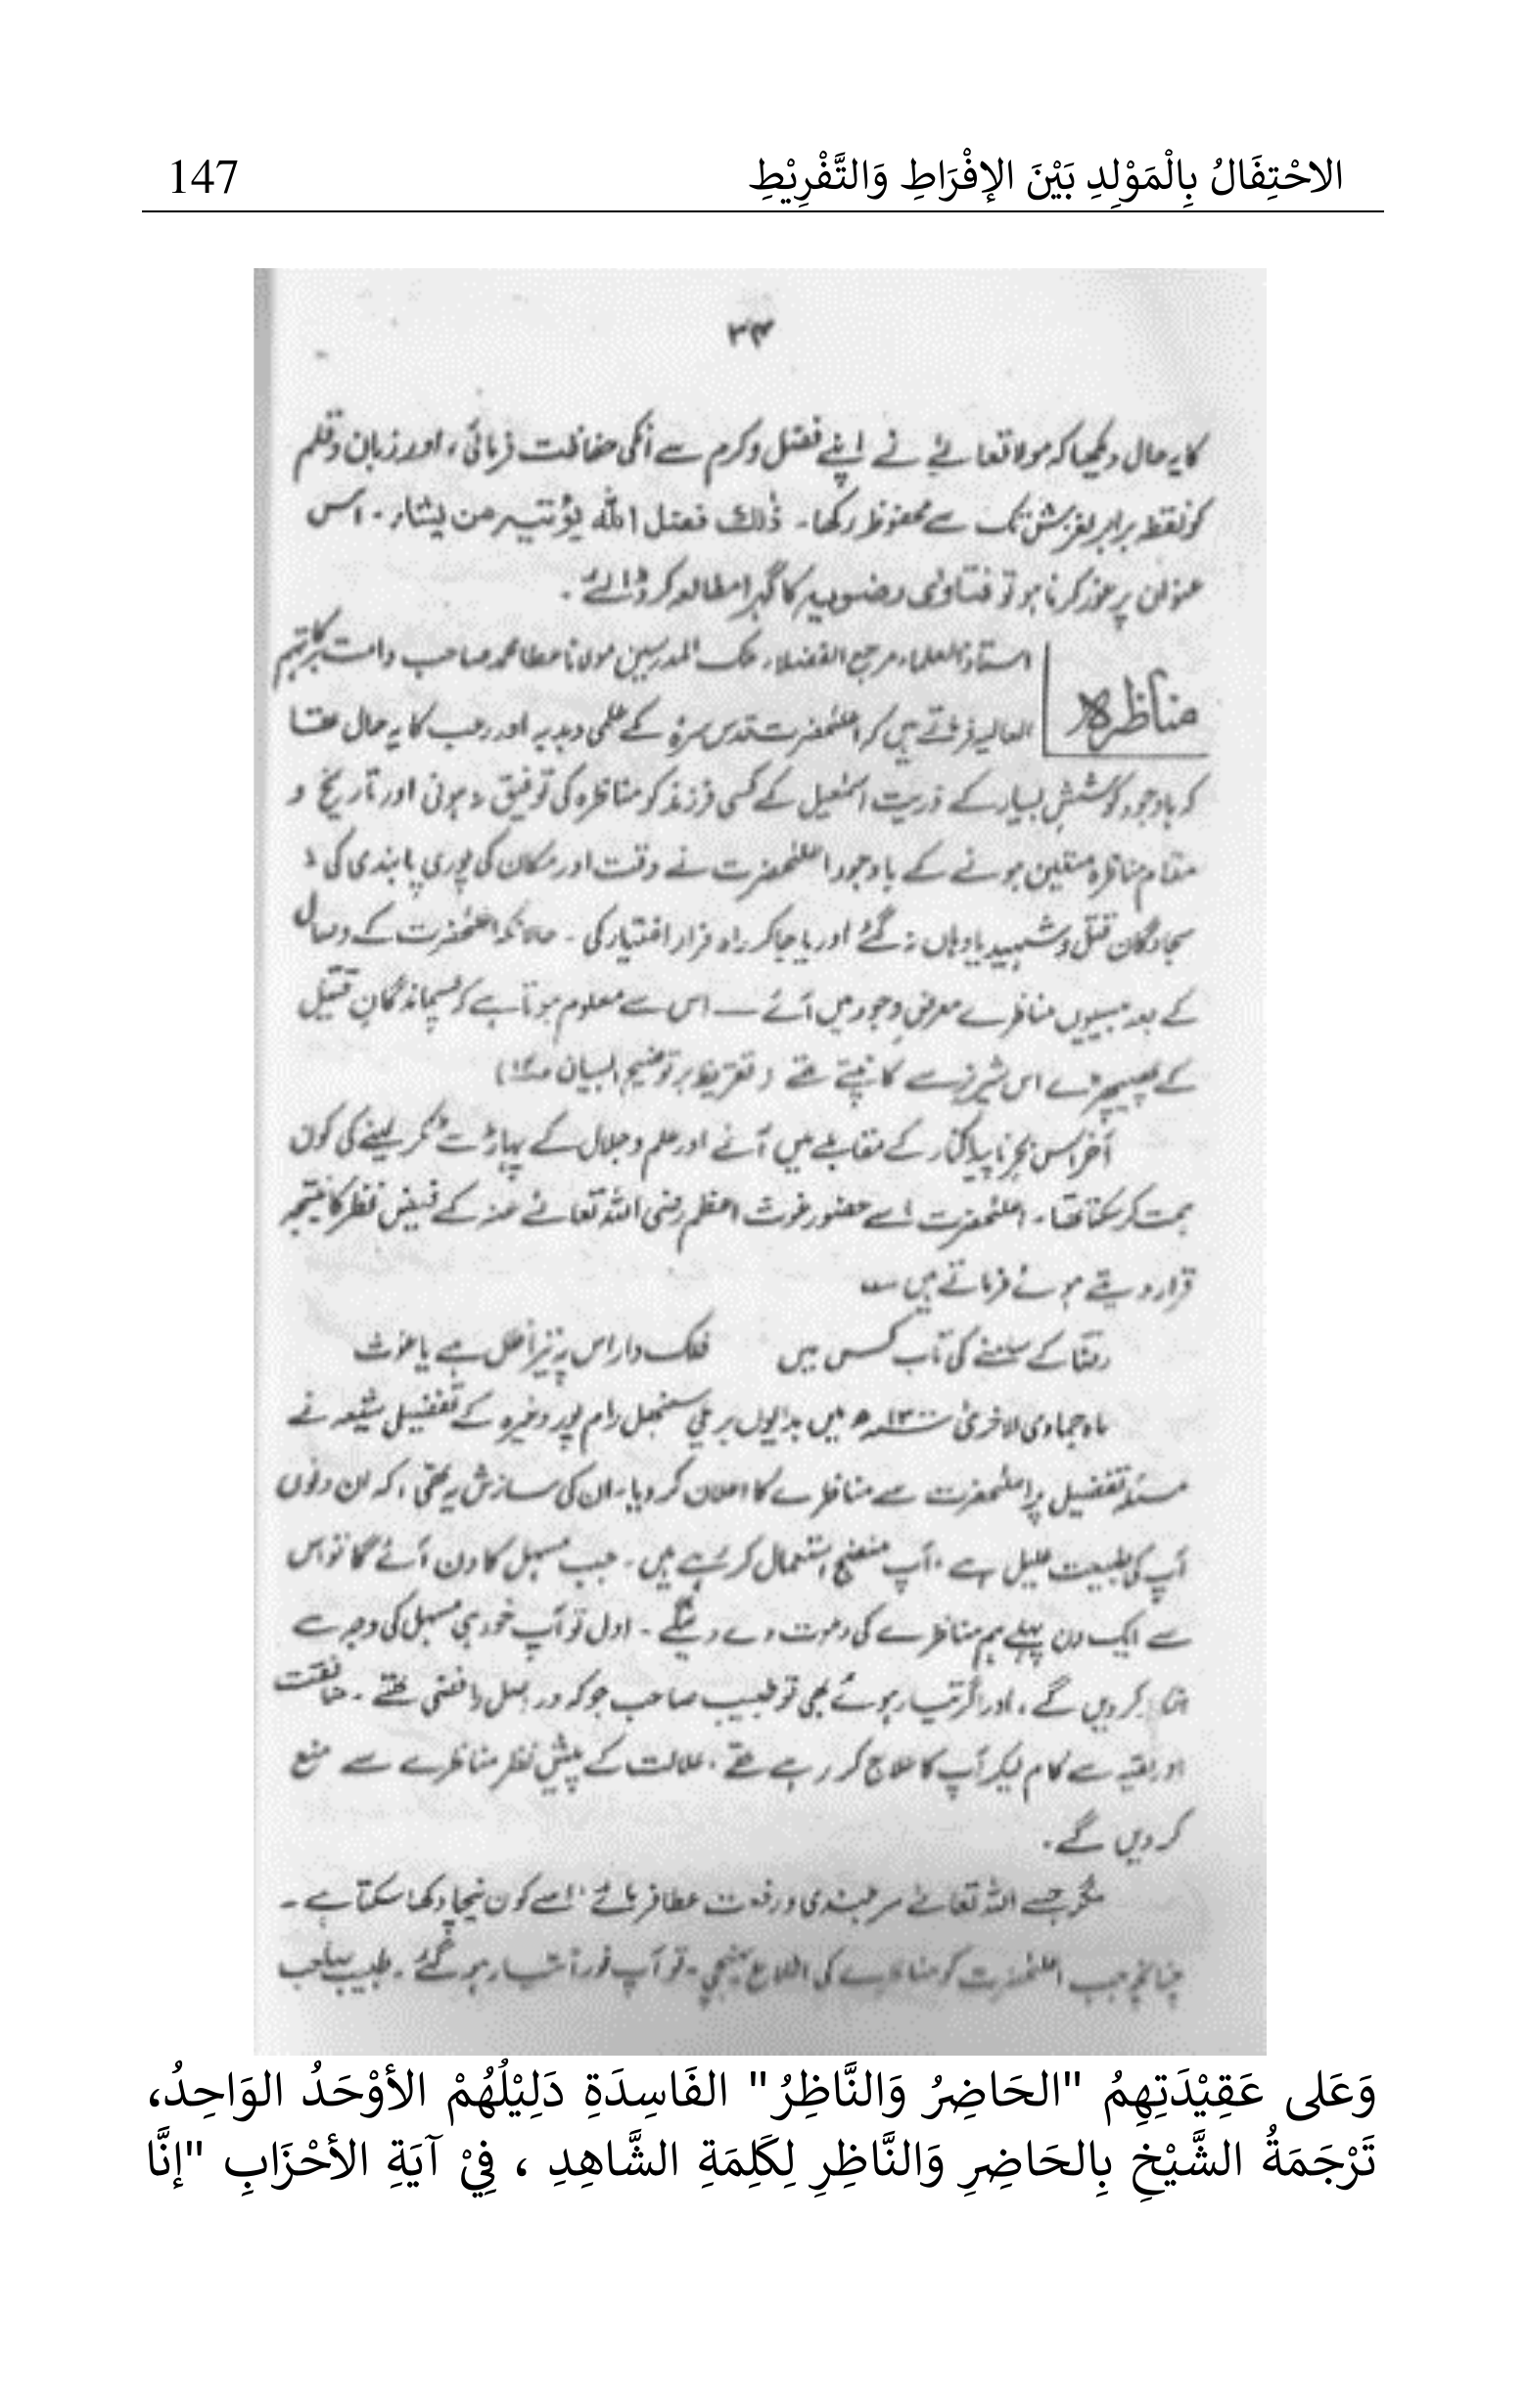 الاحْتِفَالُ بِالْمَوْلِدِ بَيْنَ الإفْرَاطِ وَالتَّفْرِيْطِ 147
۳۴
کا یہ حال دیکھا کہ مولا تعالےٰ نے اپنے فضل و کرم سے انکی حفاظت فرمائی، اور زبان و قلم
کو نقطہ برابر لغزش تک سے محفوظ رکھا۔ ذٰلك فضل الله يؤتيه من يشاء۔ اس
عنوان پر غور کرنا ہو تو فتاوٰی رضویہ کا گہرا مطالعہ کر ڈالئے۔
مناظرہ
استاذ العلماء مرجع الفضلاء ملک المدرسین مولانا عطا محمد صاحب دامت برکاتہم
العالیہ فرماتے ہیں کہ اعلٰحضرت قدس سرہٗ کے علمی دبدبہ اور رعب کا یہ حال تھا
کہ باوجود کوشش بسیار کے ذریت اسمٰعیل کے کسی فرزند کو مناظرہ کی توفیق نہ ہوئی اور تاریخ و
مقام مناظرہ متعین ہونے کے باوجود اعلٰحضرت نے وقت اور مکان کی پوری پابندی کی
قتل و شہید یا وہاں نہ گئے اور یا جا کر راہ فرار اختیار کی۔ حالانکہ اعلٰحضرت کے وصال
کے بعد بیسیوں مناظرے معرض وجود میں آئے — اس سے معلوم ہوتا ہے کہ پسماندگان قتیل
کے پھیپھڑے اس شیر نر سے کانپتے تھے (تقریظ بر توضیح البیان
آخر اس بحر ناپیدا کنار کے مقابلے میں آنے اور علم و جلال کے پہاڑ سے ٹکر لینے کی کون
ہمت کر سکتا تھا۔ اعلٰحضرت اسے حضور غوث اعظم رضی اللہ تعالےٰ عنہ کے فیض نظر کا نتیجہ
قرار دیتے ہوئے فرماتے ہیں
رضا کے سامنے کی تاب کس میں فلک وار اس پہ تیرا ظل ہے یا غوث
ماہ جمادی الاخریٰ ۱۳۰۰ھ میں بدایوں بریلی سنبھل رام پور وغیرہ کے تفضیلی شیعہ نے
مسئلہ تفضیل پر اعلٰحضرت سے مناظرے کا اعلان کر دیا۔ ان کی سازش یہ تھی، کہ ان دنوں
آپ کی طبیعت علیل ہے، آپ منضج استعمال کر رہے ہیں۔ جب مسہل کا دن آئے گا تو اس
سے ایک دن پہلے ہم مناظرے کی دعوت دے دینگے۔ اول تو آپ خود ہی مسہل کی وجہ سے
انکار کر دیں گے، اور اگر تیار ہوئے بھی تو طبیب صاحب جو کہ در اصل رافضی تھے۔
اور تقیہ سے کام لیکر آپ کا علاج کر رہے تھے، علالت کے پیش نظر مناظرے سے منع
کر دیں گے۔
مگر جسے اللہ تعالےٰ سربلندی و رفعت عطا فرمائے، اسے کون نیچا دکھا سکتا ہے۔
چنانچہ جب اعلٰحضرت کو مناظرے کی اطلاع پہنچی۔ تو آپ فوراً تیار ہو گئے۔ طبیب صاحب
وَعَلى عَقِيْدَتِهِمُ "الحَاضِرُ وَالنَّاظِرُ" الفَاسِدَةِ دَلِيْلُهُمْ الأوْحَدُ الوَاحِدُ،
تَرْجَمَةُ الشَّيْخِ بِالحَاضِرِ وَالنَّاظِرِ لِكَلِمَةِ الشَّاهِدِ ، فِيْ آيَةِ الأحْزَابِ "إنَّا